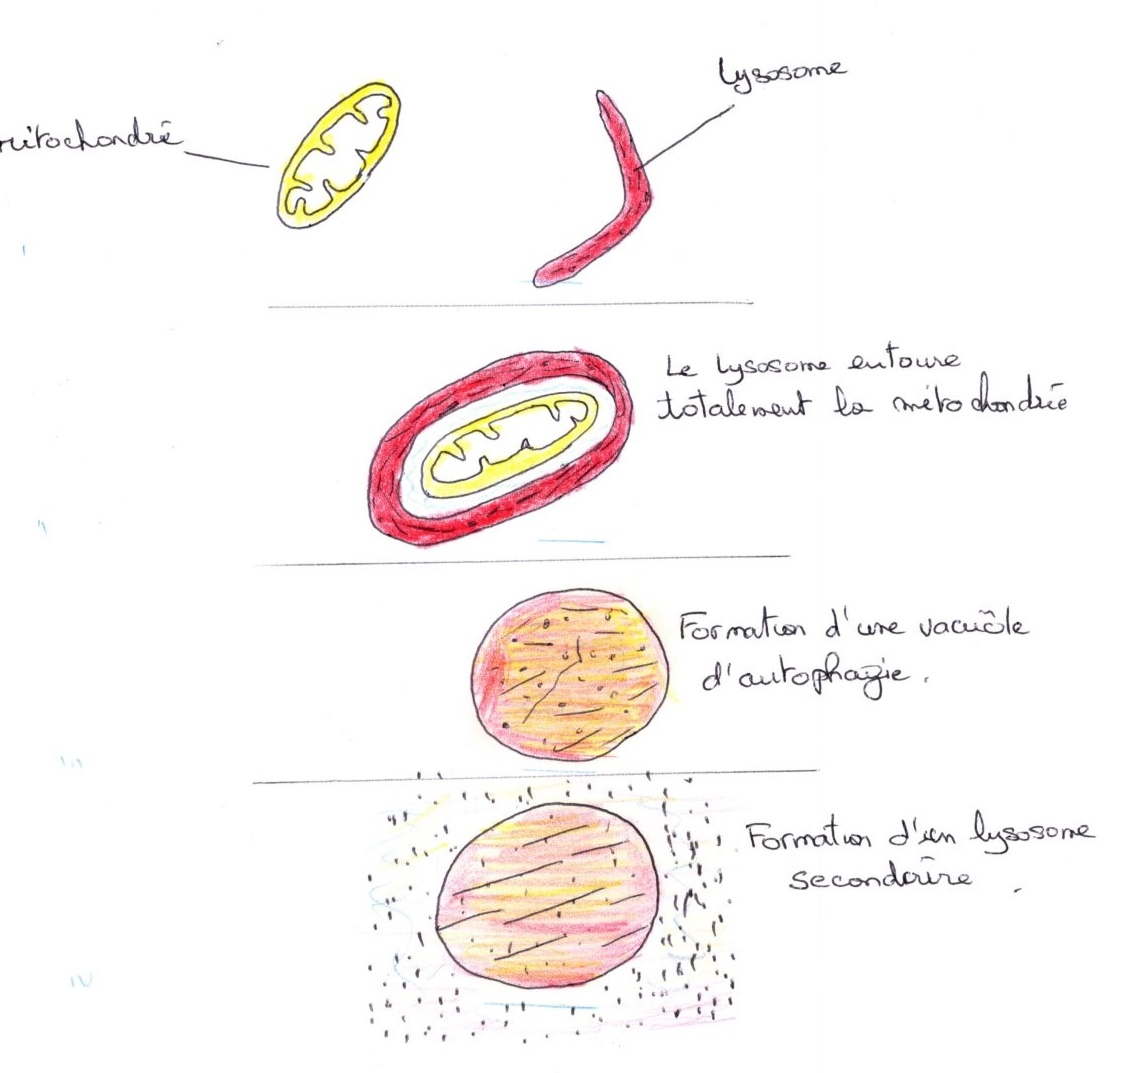 Lysosome
mitochondrie
Le lysosome entoure
totalement la mitochondrie
Formation d'une vacuôle
d'autophagie.
Formation d'un lysosome
secondaire.
I
II
III
IV